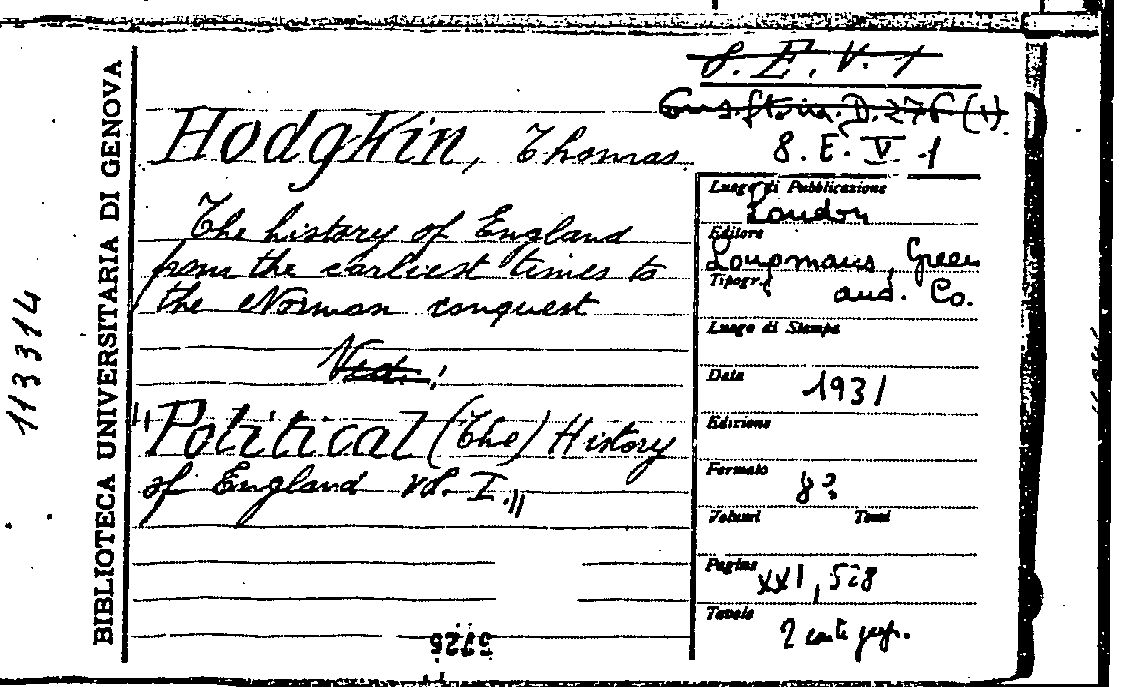 8. E. V. 1
8. E. V. 1
Hodgkin, Thomas
The history of England
from the earliest times to
the Norman conquest
Vedi:
"Political (The) History
of England vol. I."
Luogo di Pubblicazione
London
Editore
Longmans, Green
Tipogr.
and. Co.
Luogo di Stampa
Data
1931
Edizione
Formato
8º
Volumi Tomi
Pagine
XXI, 528
Tavole
2 carte
BIBLIOTECA UNIVERSITARIA DI GENOVA
113314
5725